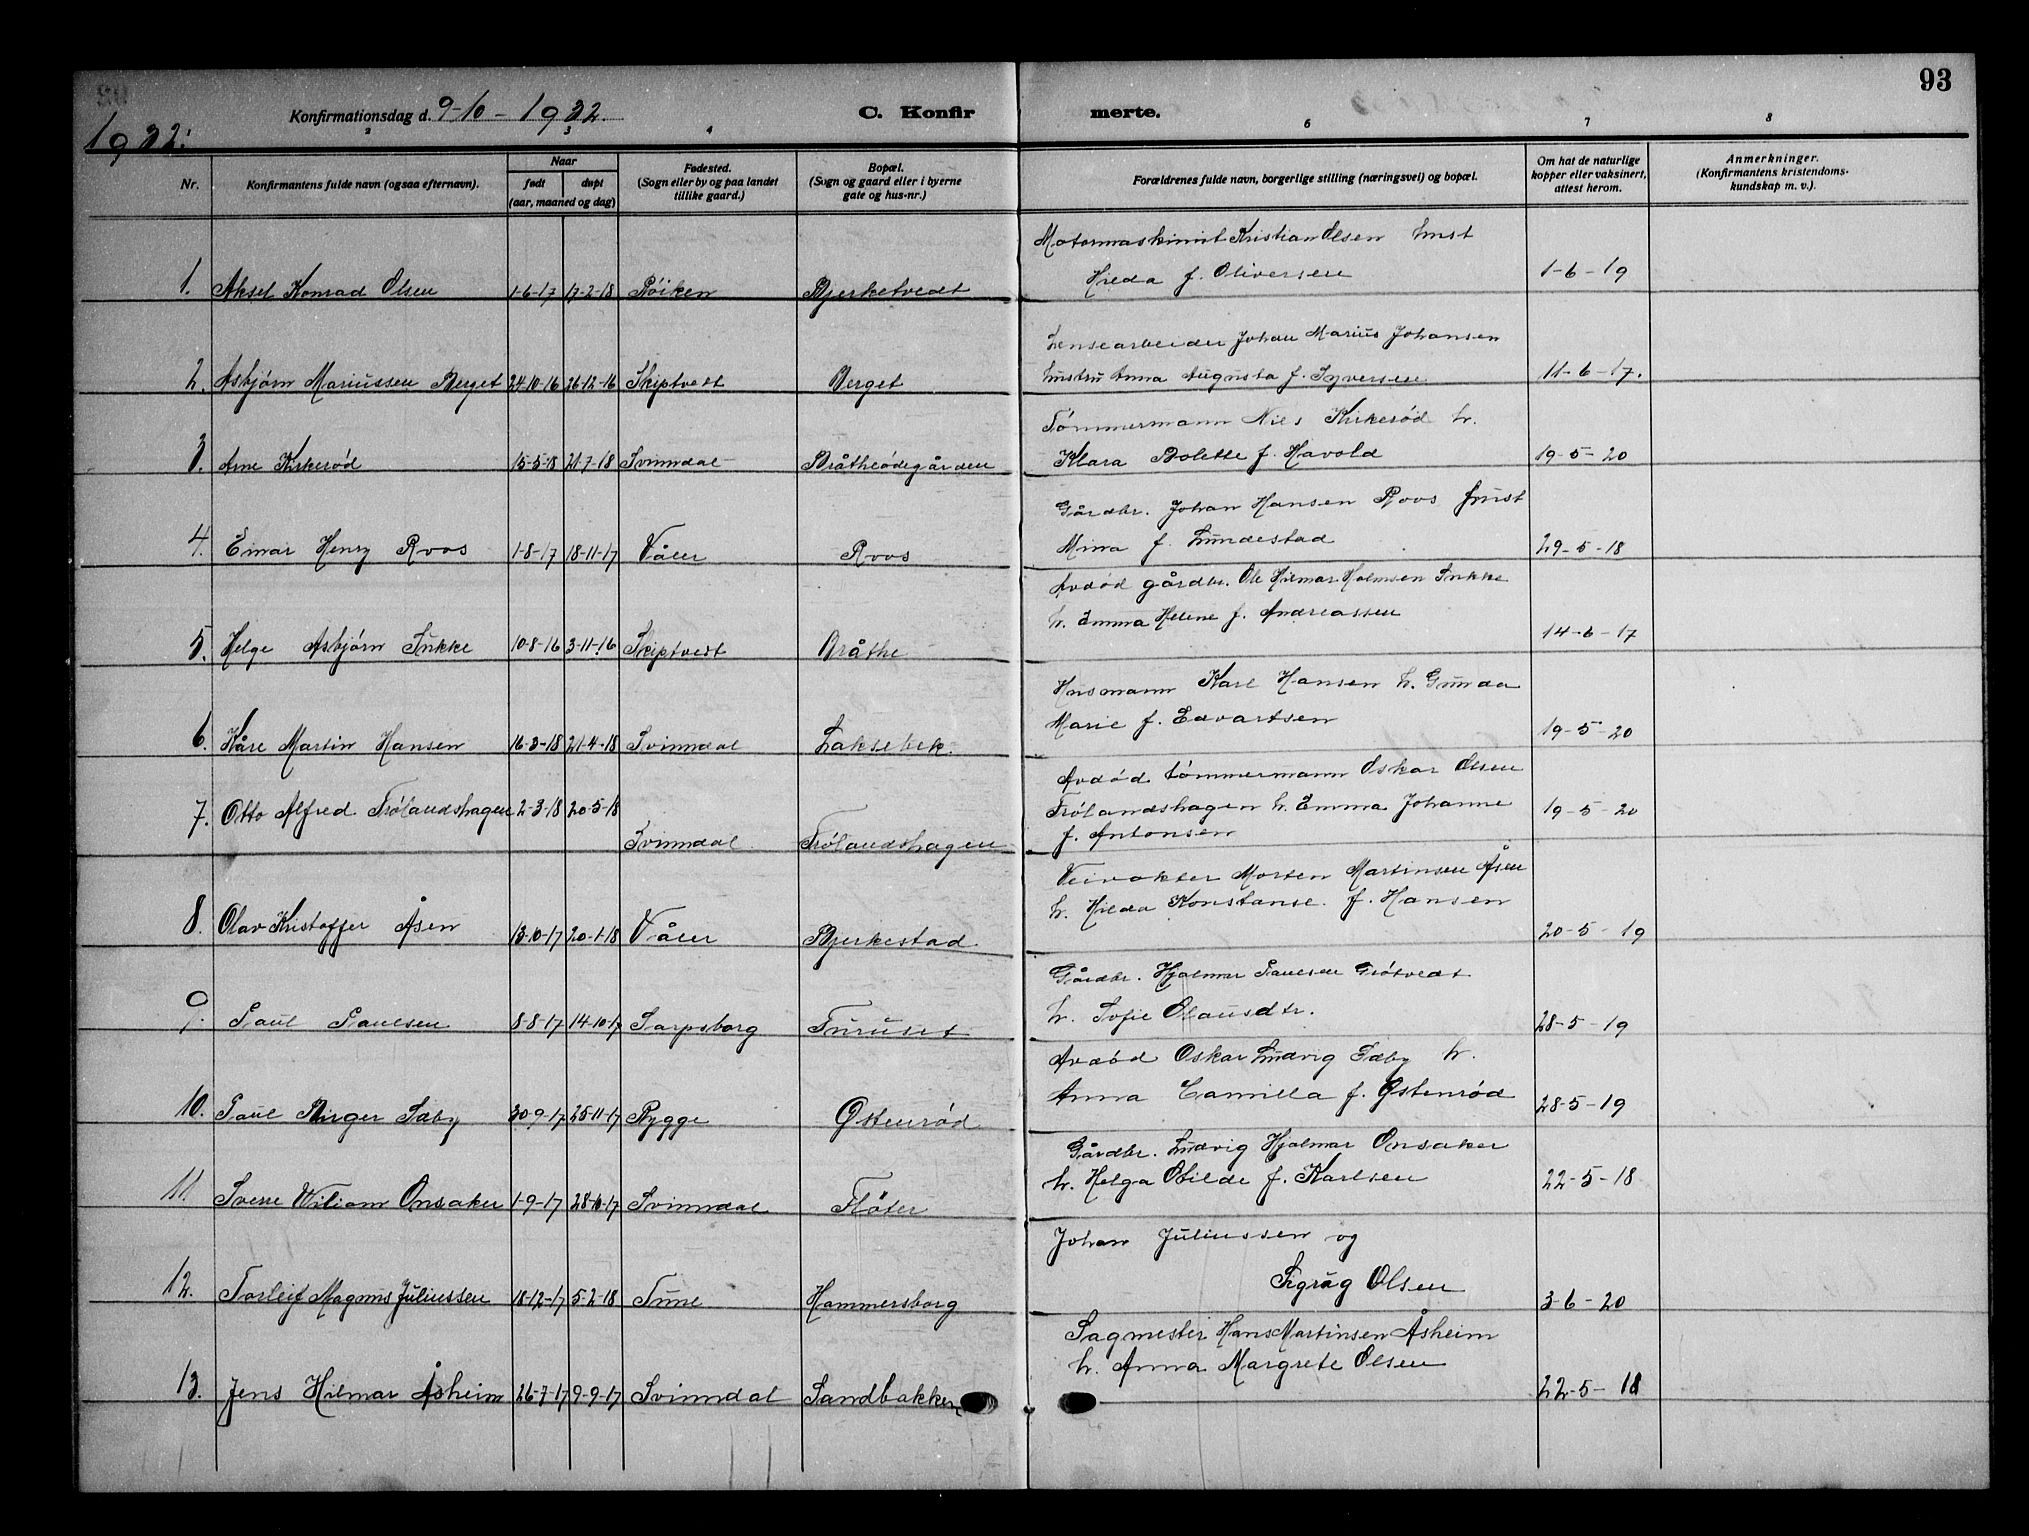 93
1932:
Konfirmationsdag d. 9-10-1932.
C. Konfirmerte.
2 3 4 6 7 8
Nr.
Konfirmantens fulde navn (ogsaa efternavn).
Naar
født døpt
(aar, maaned og dag)
Fødested.
(Sogn eller by og paa landet
tillike gaard.)
Bopæl.
(Sogn og gaard eller i byerne
gate og hus-nr.)
Forældrenes fulde navn, borgerlige stilling (næringsvei) og bopæl.
Om hat de naturlige
kopper eller vaksinert,
attest herom.
Anmerkninger.
(Konfirmantens kristendoms-
kundskap m. v.).
Motormaskinist Kristian Olsen hust
1. Aksel Konrad Olsen 1-6-17 17-2-18 Røiken Bjerketvedt Hilda f. Oliversen 1-6-19
Lensearbeider Johan Marius Johansen
2. Asbjørn Mariussen Berget 24-10-16 26-12-16 Skiptvedt Berget hustru Anna Augusta f. Syversen 11-6-17.
Tømmermann Nils Kirkerød h.
3. Arne Kirkerød 15-5-18 21-7-18 Svinndal Bråtheødegården Klara Bolette f. Havold 19-5-20
Gårdbr. Johan Hansen Roos hust
4. Einar Henry Roos 1-8-17 18-11-17 Våler Roos Mina f. Lundestad 29-5-18
Avdød gårdbr. Ole Hilmar Holmsen Sukke
h. Emma Helene f. Andreassen
5. Helge Asbjørn Sukke 10-8-16 3-11-16 Skiptvedt Bråthe 14-6-17
Husmann Karl Hansen h. Gunda
6. Kåre Martin Hansen 16-3-18 21-4-18 Svinndal Laksebek. Marie f. Edvartsen 19-5-20
Avdød tømmermann Oskar Olsen
7. Otto Alfred Trølandshagen 2-3-18 20-5-18 Svinndal Trølandshagen Trølandshagen h. Emma Johanne 19-5-20
f. Antonsen
Veivokter Morten Martinsen Åsen
h. Hilda Konstanse. f. Hansen
8. Olav Kristoffer Åsen 13-10-17 20-1-18 Våler Bjerkestad 20-5-19
Gårdbr. Hjalmar Paulsen Grøtvedt
9. Paul Paulsen 8-8-17 14-10-17 Sarpsborg Furuset h. Sofie Olausdtr. 28-5-19
Avdød Oskar Ludvig Sæby h.
10. Paul Birger Sæby 30-9-17 25-11-17 Rygge Østenrød Anna Camilla f. Østenrød 28-5-19
Gårdbr. Ludvig Hjalmar Onsaker
11. Sverre Wiliam Onsaker 1-9-17 28-10-17 Svinndal Fløter h. Helga Otilde f. Karlsen 22-5-18
Johan Juliussen og
12. Torleif Magnus Juliussen 18-12-17 5-2-18 Tune Hammersborg Sigrag Olsen 3-6-20
Sagmester Hans Martinsen Åsheim
h. Anna Margrete Olsen
13. Jens Hilmar Åsheim 26-7-17 9-9-17 Svinndal Sandbakken 22-5-18